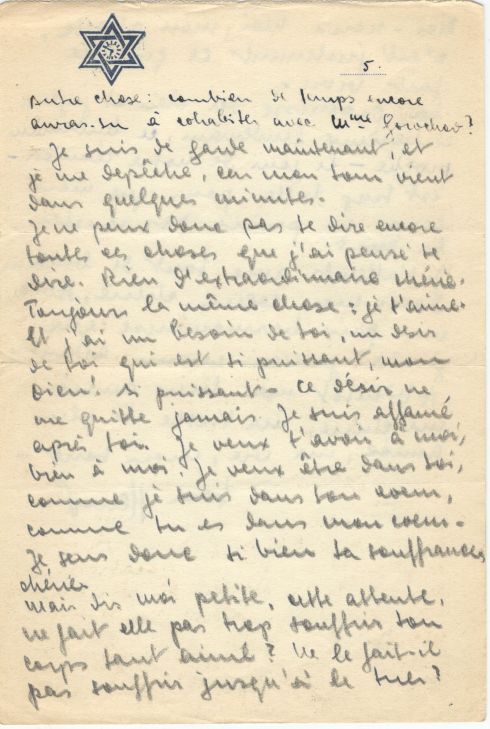 5.
Autre chose: combien de temps encore
auras-tu à cohabiter avec Mme
Je suis de garde maintenant, et
je me depêche, car mon tour vient
dans quelques minutes.
Je ne peux donc pas te dire encore
toutes ces choses que j'ai pensé te
dire. Rien d'extraordinaire chérie.
Toujours la même chose: je t'aime.
Et j'ai un besoin de toi, un desir
de toi qui est si puissant, mon
Dieu! si puissant - ce désir ne
me quitte jamais. Je suis affamé
après toi. Je veux t'avoir à moi,
bien à moi. Je veux être dans toi,
comme je suis dans ton coeur,
comme tu es dans mon coeur.
Je sens donc si bien ta souffrance
chérie
mais dis moi petite, cette attente,
ne fait elle pas trop souffrir ton
corps tant aimé? Ne le fait-il
pas souffrir jusqu'à le tuer?